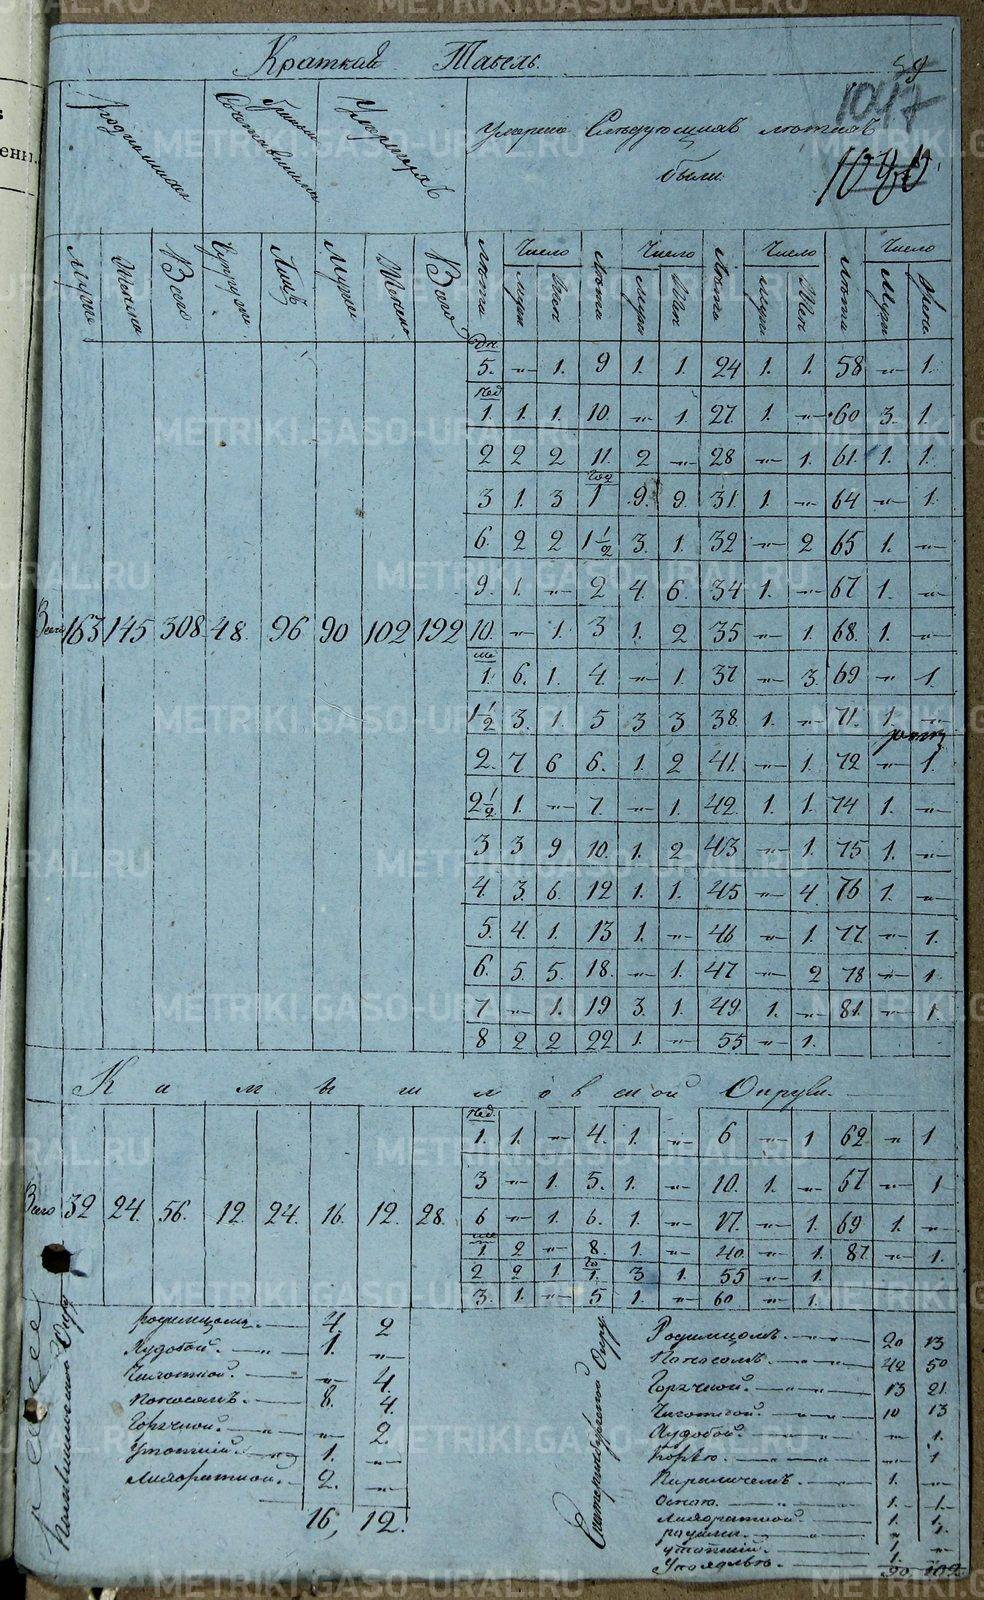 Краткая Табель.
59
1047
1040
Родившихся
Бракомъ Сочетавшихся
Умершихъ
Умерло Следующихъ летахъ
были
Мужск Женска Всего Супруж Лицъ Мужск Женска Всего
Лѣта Число Муж Жен Лѣта Число Муж Жен Лѣта Число Муж Жен Лѣта Число Муж Жен
дн.
5. -"- 1. 9 1. 1. 24 1. 1. 58 -"- 1.
нед
1. 1. 1. 10 -"- 1. 27. 1. -"- 60 3. 1.
2 2 2 11. 2 -"- 28 -"- 1. 61. 1. 1.
год
3 1. 3 1 9. 9. 31. 1. -"- 64 -"- 1.
6. 2 2 1½ 3. 1. 32 -"- 2 65 1. -"-
9. 1. -"- 2 4. 6. 34 1. -"- 67 1. -"-
Всего 163 145 308 48. 96 90 102 192 10. -"- 1. 3 1. 2 35 -"- 1. 68. 1. -"-
ме
1. 6. 1. 4. -"- 1. 37 -"- 3. 69 -"- 1.
1½ 3. 1. 5 3 3 38. 1. -"- 71. 1. -"-
2. 7 6 6. 1. 2 41. -"- 1. 72 -"- 1.
2½ 1. -"- 7. -"- 1. 42. 1. 1. 74 1. -"-
3 3 9 10. 1. 2 43 -"- 1. 75 1. -"-
4. 3. 6. 12 1. 1. 45 -"- 4. 76 1. -"-
5. 4. 1. 13 1. -"- 46 -"- 1. 77. -"- 1.
6. 5. 5. 18. -"- 1. 47 -"- 2 78 -"- 1
7 -"- 1. 19 3. 1. 49 1. -"- 81. -"- 1.
8 2 2 22 1. -"- 55 -"- 1.
Камышловской Округи.
нед.
1. 1. -"- 4. 1. -"- 6 -"- 1 62. " 1
3 -"- 1. 5. 1. -"- 10. 1. -"- 67 -"- 1
Всего 32 24. 56. 12. 24. 16. 12. 28. 6 -"- 1. 6. 1. -"- 17. -"- 1. 69 1. -"-
ме
1. 2 -"- 8. 1. -"- 40. -"- 1. 87. -"- 1.
го
2 2 1. 1. 3 1. 55 -"- 1.
3. 1. -"- 5 1. -"- 60 -"- 1.
Камышловской Округ
родимцомъ. 4. 2
Худобой. 1. -"-
Чихотной. -"- 4.
Поносомъ. 8. 4.
Горячкой. -"- 2.
Утопшій. 1. -"-
Лихораткой. 2. -"-
16, 12.
Екатеринбургской Округ
Родимцомъ. 20 13
Поносомъ. 42 50
Горячкой. 13 21.
Чихоткой. 10 13
Худобой. -"- 1.
Корью. -"- 1
Параличемъ. 1. -"-
Оспою. 1. 1.
Лихораткой. 1. 1.
родами. " 1.
утопшій. 1. "
1. -"-
90 102
METRIKI.GASO-URAL.RU